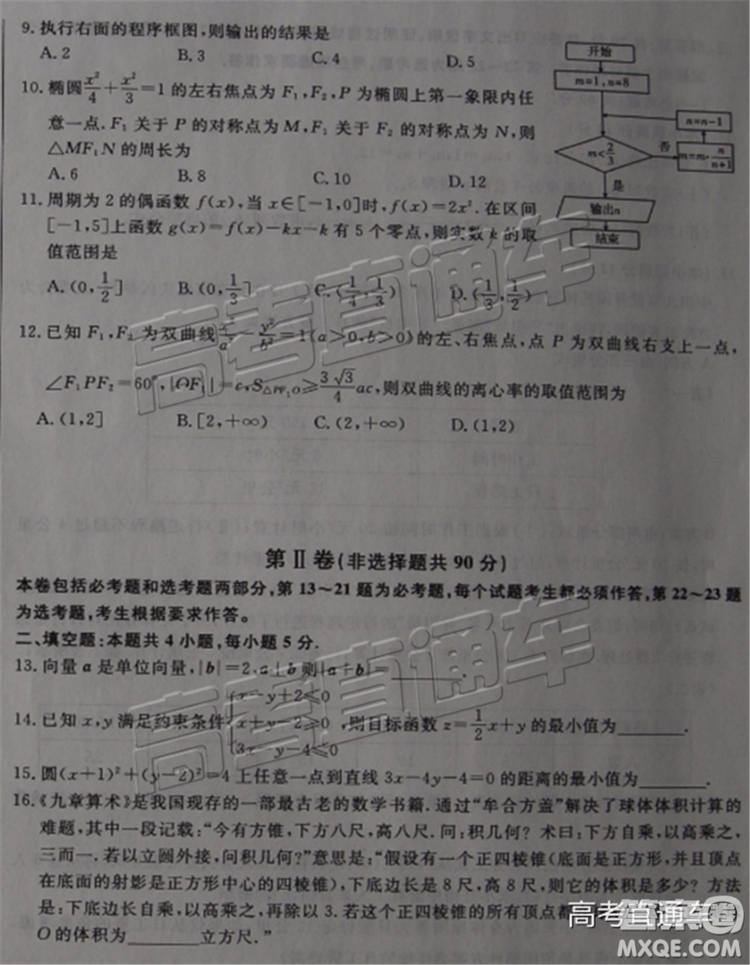 9. 执行右面的程序框图，则输出的结果是
A. 2 B. 3 C. 4 D. 5
开始
m=1, n=8
n=n-1
m<2/3
否
m=m·n/(n+1)
是
输出n
结束
10. 椭圆x²/4+y²/3=1的左右焦点为 F₁,F₂,P 为椭圆上第一象限内任
意一点. F₁ 关于 P 的对称点为 M,F₁ 关于 F₂ 的对称点为 N,则
△MF₁N 的周长为
A. 6 B. 8 C. 10 D. 12
11. 周期为 2 的偶函数 f(x),当 x∈[-1,0]时,f(x)=2x². 在区间
[-1,5]上函数 g(x)=f(x)-kx-k 有 5 个零点,则实数 k 的取
值范围是
A. (0,1/2] B. (0,1/3] C. (1/4,1/3) D. (1/3,1/2)
12. 已知 F₁,F₂ 为双曲线x²/a²-y²/b²=1(a>0,b>0)的左、右焦点,点 P 为双曲线右支上一点,
∠F₁PF₂=60°,|OF₁|=c,S△PF₁O≥3√3/4 ac,则双曲线的离心率的取值范围为
A. (1,2] B. [2,+∞) C. (2,+∞) D. (1,2)
第Ⅱ卷(非选择题共 90 分)
本卷包括必考题和选考题两部分,第 13~21 题为必考题,每个试题考生都必须作答,第 22~23 题
为选考题,考生根据要求作答。
二、填空题:本题共 4 小题,每小题 5 分.
13. 向量 a 是单位向量,|b|=2,a⊥b 则|a+b|=______.
14. 已知 x,y 满足约束条件{x-y+2≤0
x+y-2≥0
3x-y-4≤0
,则目标函数 z=1/2x+y 的最小值为______.
15. 圆(x+1)²+(y-2)²=4 上任意一点到直线 3x-4y-4=0 的距离的最小值为______.
16.《九章算术》是我国现存的一部最古老的数学书籍. 通过“牟合方盖”解决了球体体积计算的
难题,其中一段记载:“今有方锥,下方八尺,高八尺. 问:积几何? 术曰:下方自乘,以高乘之,
三而一. 若以立圆外接,问积几何?”意思是:“假设有一个正四棱锥(底面是正方形,并且顶点
在底面的射影是正方形中心的四棱锥),下底边长是 8 尺,高 8 尺,则它的体积是多少? 方法
是:下底边长自乘,以高乘之,再除以 3. 若这个正四棱锥的所有顶点都
O 的体积为______立方尺.”
高考直通车
高考直通车
高考直通车
MXQE.COM